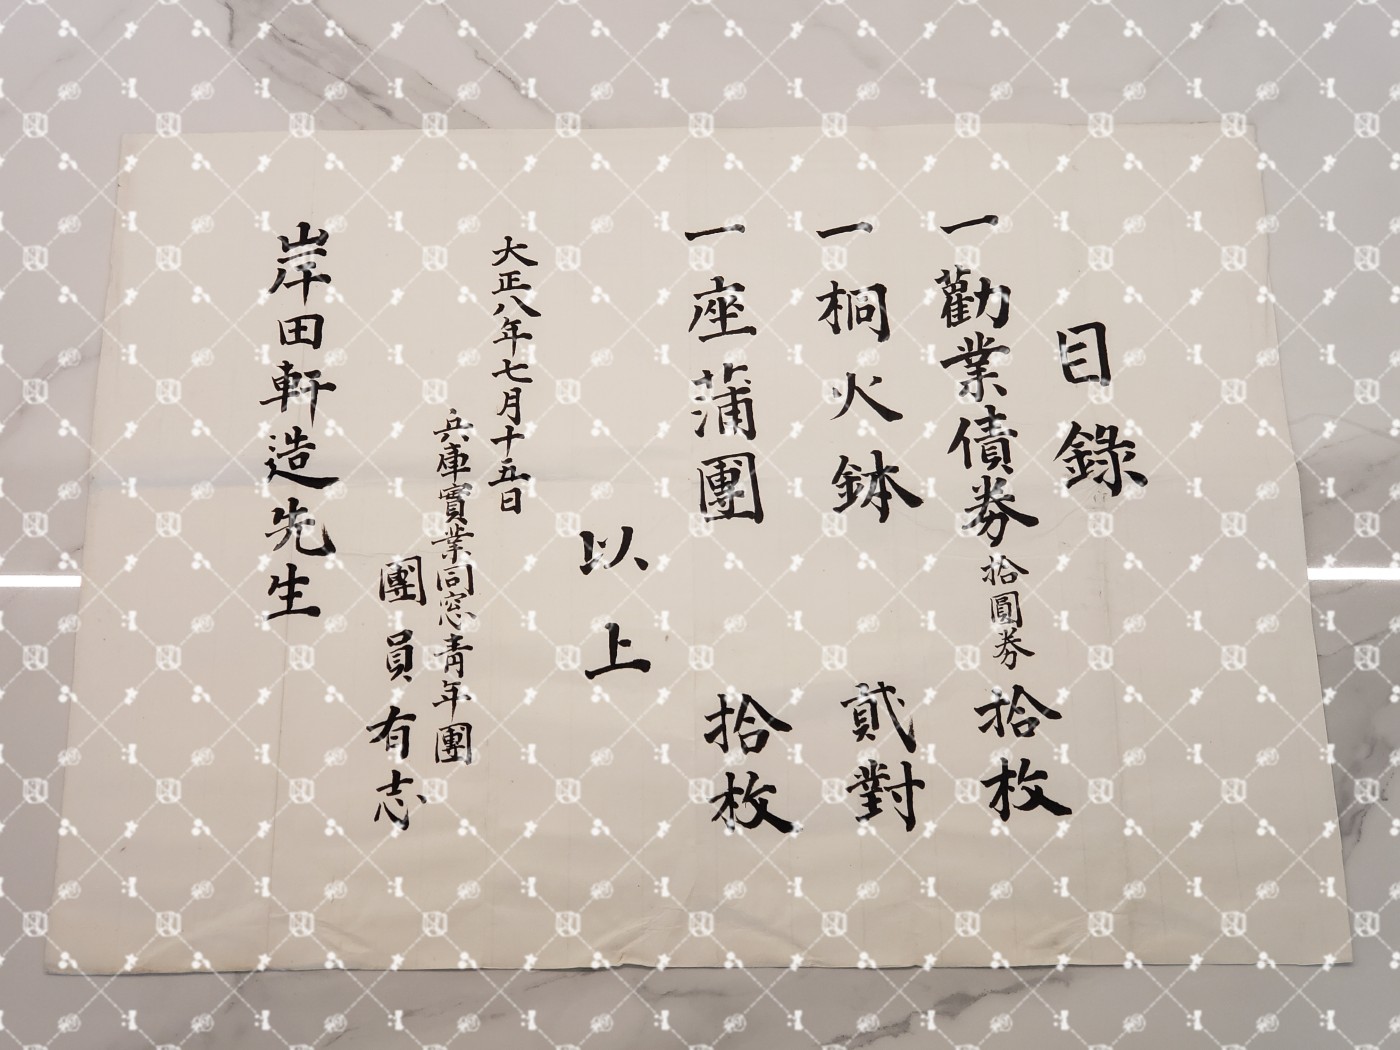 目錄
一勸業債券拾圓券拾枚
一桐火鉢貳對
一座蒲團拾枚
以上
大正八年七月十五日
兵庫實業同窓青年團
團員有志
岸田軒造先生